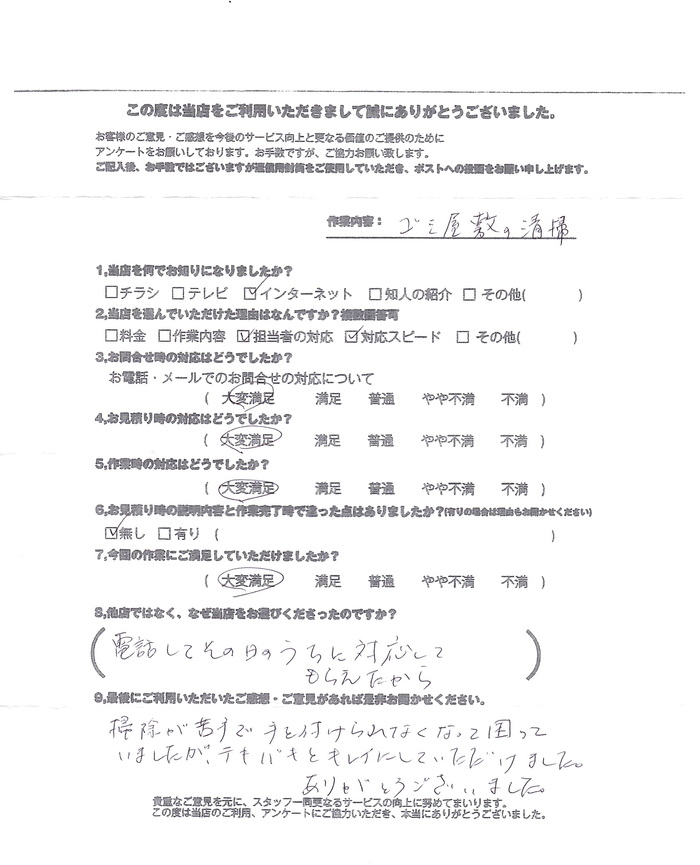 この度は当店をご利用いただきまして誠にありがとうございました。
お客様のご意見・ご感想を今後のサービス向上と更なる価値のご提供のために
アンケートをお願いしております。お手数ですが、ご協力お願い致します。
ご記入後、お手数ではございますが返信用封筒をご使用していただき、ポストへの投函をお願い申し上げます。
作業内容： ゴミ屋敷の清掃
1,当店を何でお知りになりましたか？
□チラシ □テレビ ☑インターネット □知人の紹介 □ その他( )
2,当店を選んでいただけた理由はなんですか？複数回答可
□料金 □作業内容 ☑担当者の対応 ☑対応スピード □ その他( )
3,お問合せ時の対応はどうでしたか？
お電話・メールでのお問合せの対応について
( 大変満足 満足 普通 やや不満 不満 )
4,お見積り時の対応はどうでしたか？
( 大変満足 満足 普通 やや不満 不満 )
5,作業時の対応はどうでしたか？
( 大変満足 満足 普通 やや不満 不満 )
6,お見積り時の説明内容と作業完了時で違った点はありましたか？(有りの場合は理由もお聞かせください)
☑無し □有り ( )
7,今回の作業にご満足していただけましたか？
( 大変満足 満足 普通 やや不満 不満 )
8,他店ではなく、なぜ当店をお選びくださったのですか？
(電話してその日のうちに対応して
もらえたから)
9,最後にご利用いただいたご感想・ご意見があれば是非お聞かせください。
掃除が苦手で手を付けられなくなって困って
いましたが、テキパキとキレイにしていただけました。
ありがとうございました。
貴重なご意見を元に、スタッフ一同更なるサービスの向上に努めてまいります。
この度は当店のご利用、アンケートにご協力いただき、本当にありがとうございました。